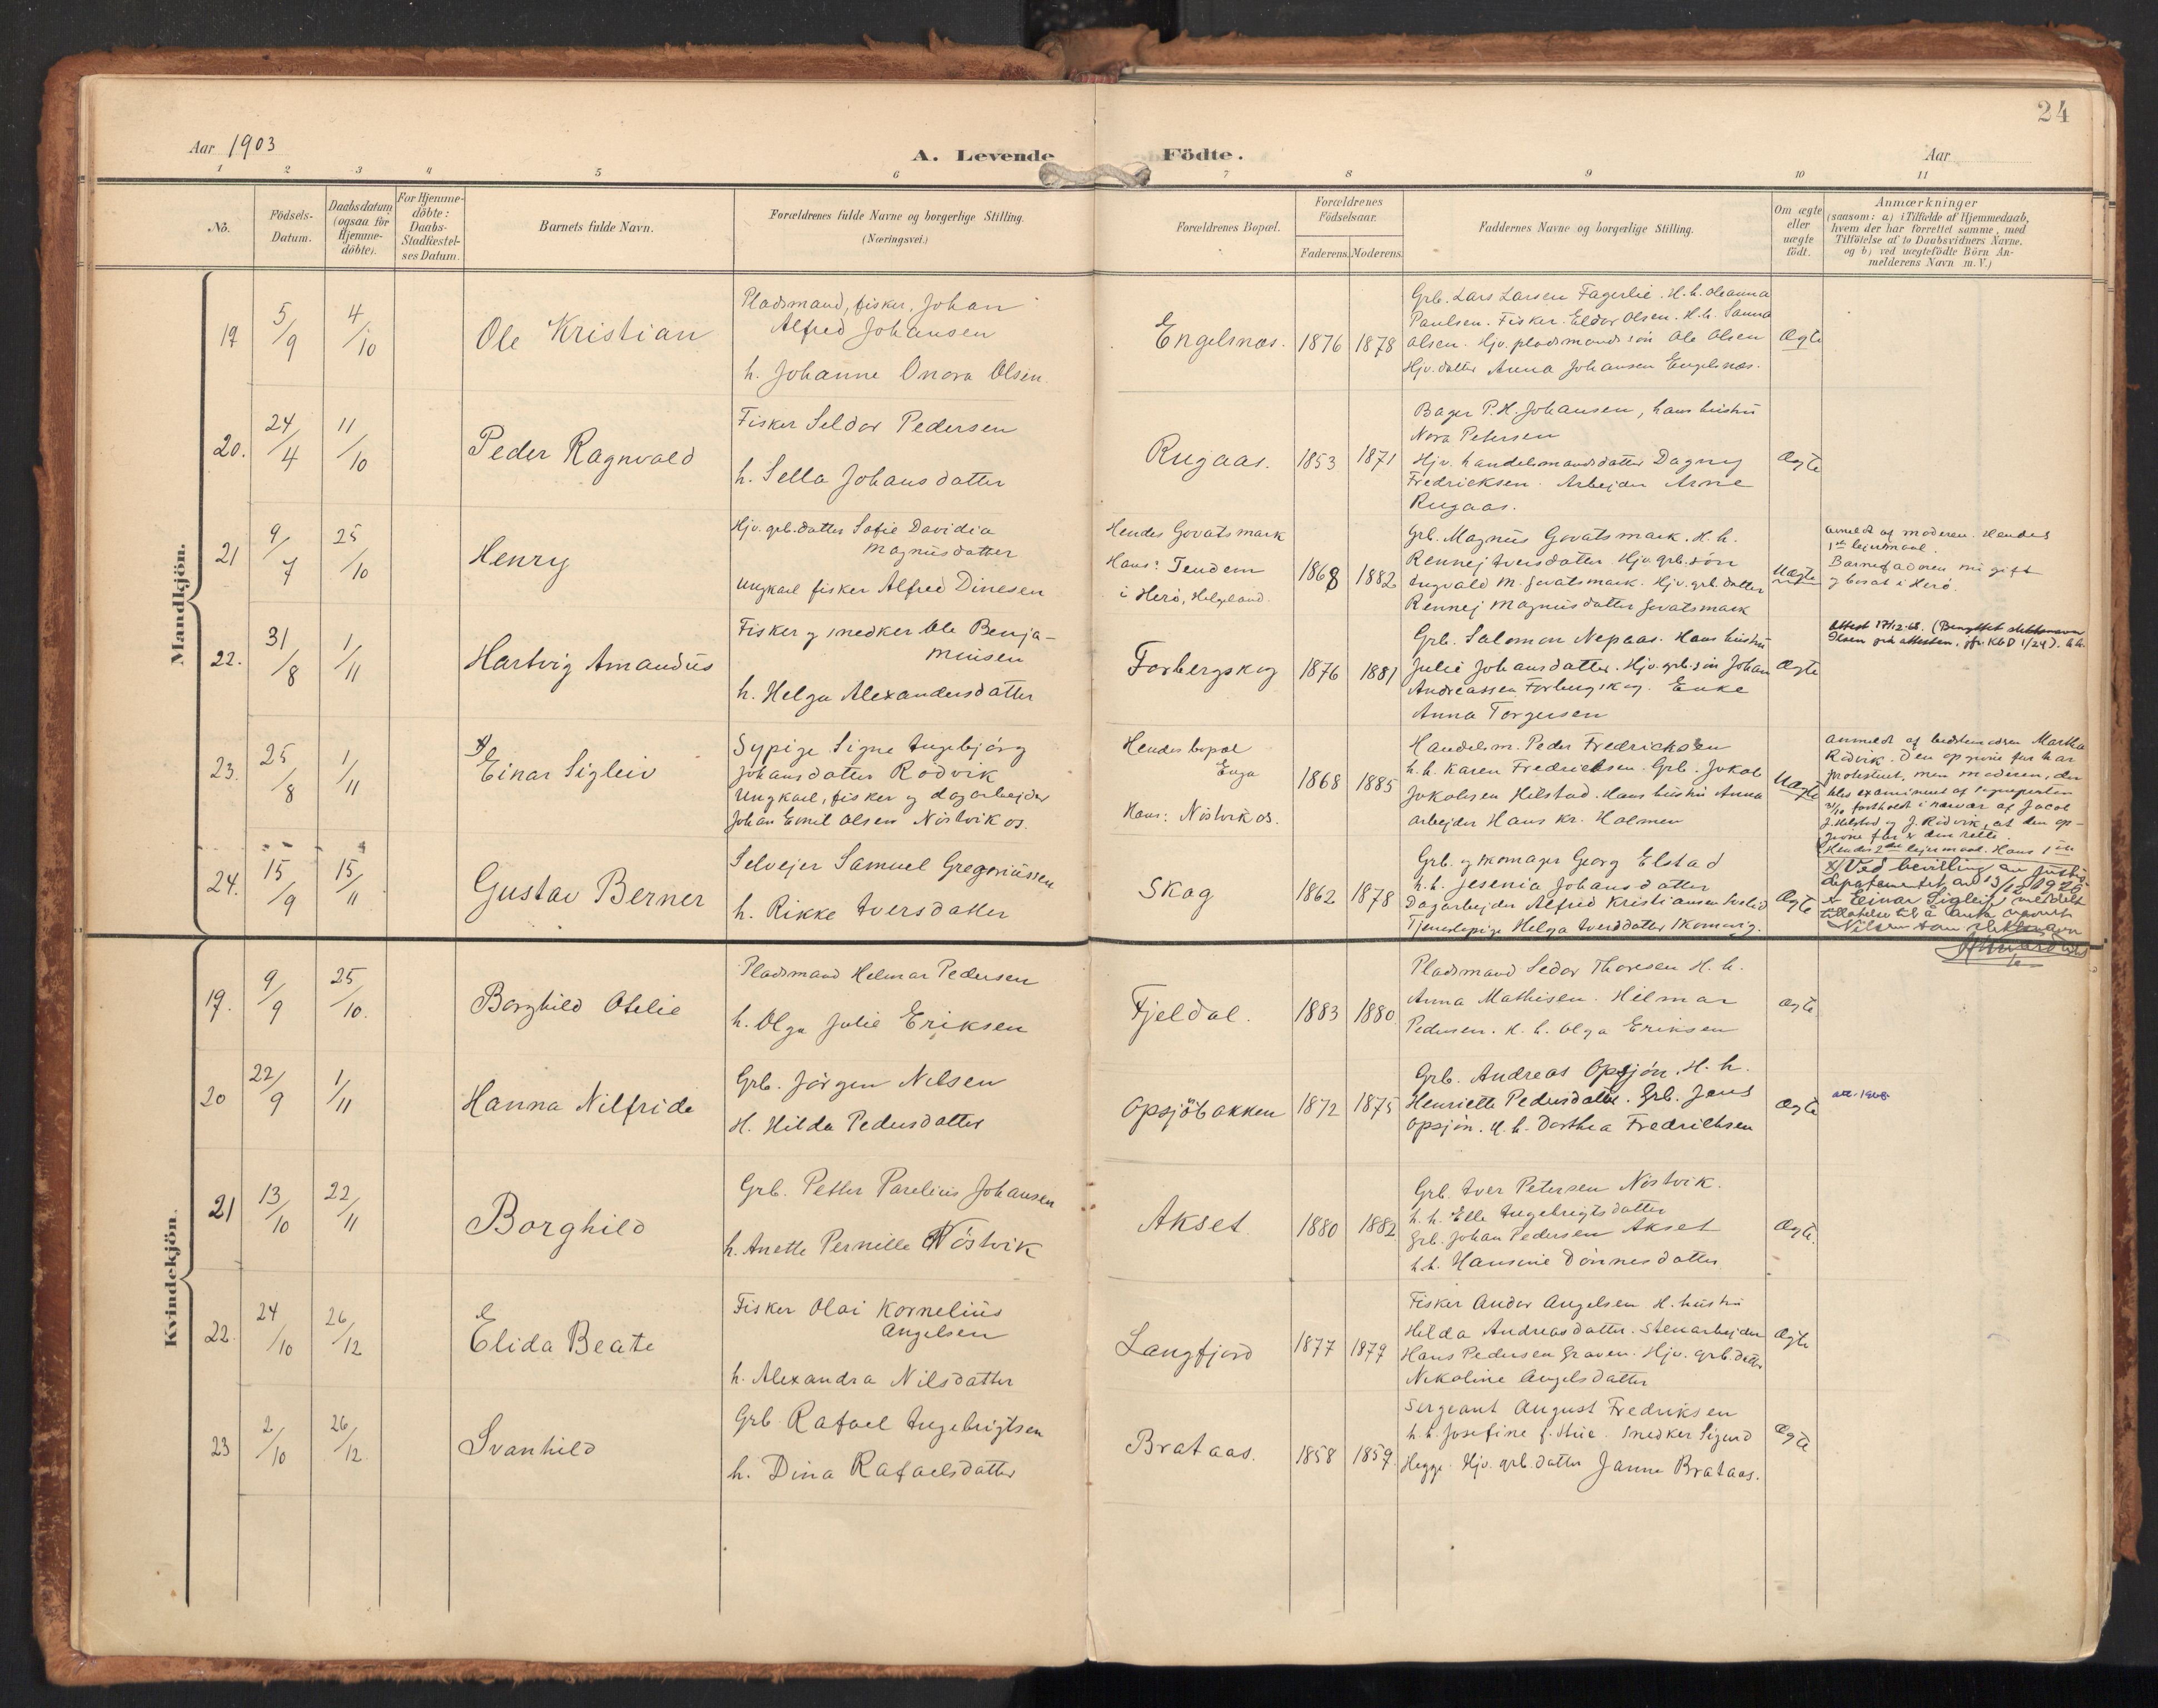 24
Aar 1903
A. Levende Födte.
Aar
1 2 3 4 5 6 7 8 9 10 11
No.
Födsels-Datum.
Daabsdatum (ogsaa for Hjemme-döbte).
For Hjemme-döbte: Daabs-Stadfæstel-ses Datum.
Barnets fulde Navn.
Forældrenes fulde Navne og borgerlige Stilling. (Næringsvei.)
Forældrenes Bopæl.
Forældrenes Födselsaar.
Faderens. Moderens.
Faddernes Navne og borgerlige Stilling.
Om ægte eller uægte födt.
Anmærkninger
(saasom: a) i Tilfælde af Hjemmedaab,
hvem der har forrettet samme, med
Tilföielse af to Daabsvidners Navne.
og b) ved uægtefödte Börn An-
melderens Navn m. V.)
Mandkjön.
19
5/9
4/10
Ole Kristian
Pladsmand, fisker, Johan
Alfred Johansen
h. Johanne Onora Olsen
Engelsnæs.
1876
1878
Grb. Lars Larsen Fagerlie. H. h. Oleanna
Paulsen. Fisker Eldor Olsen. H. h. Sanna
Olsen. Hjv. pladsmands søn Ole Olsen
Hjv. datter Anna Johansen Engelsnæs.
Ægte
20.
24/4
11/10
Peder Ragnvald
Fisker Seldor Pedersen
h. Sella Johansdatter
Rugaas.
1853
1871
Bager P. H. Johansen, hans hustru
Nora Petersen
Hjv. handelsmandsdatter Dagny
Fredricksen. Arbejder Arne
Rugaas.
Ægte
21
9/7
25/10
Henry
Hjv. grb. datter Sofie Davidia
Magnusdatter
Ungkarl fisker Alfred Dinesen
Hendes Govatsmark
Hans: Tendem
i Herö, Helgeland.
1868
1882
Grb. Magnus Govatsmark. H. h.
Rennej Iversdatter. Hjv. grb. søn
Ingvald M. Govatsmark. Hjv. grb. datter
Rennej Magnusdatter Govatsmark
Uægte
Anmeldt af moderen. Hendes
1ste lejermaal.
Barnefaderen nu gift
og bosat i Herö.
22.
31/8
1/11
Hartvig Amandus
Fisker og snedker Ole Benja-
minsen
h. Helga Alexandersdatter
Forbergskog
1876
1881
Grb. Salomon Nepaas. Hans hustru
Julie Johansdatter. Hjv. grb. søn Johan
Andreassen Forbergskog. Enke
Anna Torgersen
Ægte
Attest 17/12-68. (Benyttet slektsnavn
Olsen på attesten, jfr. KbD 1/24).
23.
25/8
1/11
x) Einar Sigleiv
Sypige Signe Ingebjörg
Johansdatter Rödvik
Ungkarl, fisker og dagarbejder
Johan Emil Olsen Nöstvikos.
Hendes bopæl
Enga
Hans: Nöstvikos.
1868
1885
Handelsm. Peder Fredricksen
h. h. Karen Fredricksen. Grb. Jokob
Jokobsen Hilstad. Hans hustru Anna
Arbejder Hans Kr. Holmen
Uægte
Anmeldt af bedstemoderen Martha
Rödvik. Den opgivne far har
protesteret, men moderen, der
blev examineret af sognepresten
fastholdt i nærvær af Jacob
J. Hilstad og J. Rödvik, at den op-
givne far er den rette.
Hendes 2det lejermaal. Hans 1ste
24.
15/9
15/11
Gustav Berner
Selvejer Samuel Gregoriussen
h. Rikke Iversdatter
Skag
1862
1878
Grb. og skomager Georg Elstad
h. h. Jesenia Johansdatter
Dagarbejder Alfred Kristiansen
Tjenestepige Helga Iversdatter
Ægte
x) Ved bevilling av Justis-
departementet av 13/12 1920
er Einar Sigleif meddelt
tilladelse til å anta navnet
Nilsen som slektsnavn
Kvindekjön.
19.
9/9
25/10.
Borghild Otelie
Pladsmand Helmar Pedersen
h. Olga Julie Eriksen
Fjeldal.
1883
1880
Pladsmand Sedor Thoresen H. h.
Anna Mathisen. Hilmar
Pedersen. H. h. Olga Eriksen
Ægte
20
22/9
1/11
Hanna Nilfride
Grb. Jörgen Nilsen
H. Hilda Pedersdatter
Opsjöbakken
1872
1875
Grb. Andreas Opsjön. H. h.
Henriette Pedersdatter. Grb. Jens
Opsjön. H. h. Dorthea Fredrichsen
Ægte
att. 1968
21
13/10
22/11
Borghild
Grb. Petter Parelius Johansen
h. Anette Pernille Nöstvik
Akset
1880
1882
Grb. Iver Petersen Nöstvik.
h. h. Elle Ingebrigtsdatter
Grb. Johan Pedersen Akset
h. h. Hansine Dönnesdatter
Ægte.
22.
24/10
26/12
Elida Beate
Fisker Olai Kornelius
Angelsen
h. Alexandra Nilsdatter
Langfjord
1877
1879
Fisker Andor Angelsen H. hustru
Hilda Andreasdatter. Stenarbejder
Hans Pedersen Graven. Hjv. grb. datter
Nekoline Angelsdatter
Ægte
23
2/10
26/12
Svanhild
Grb Rafael Ingebrigtsen
h. Dina Rafaelsdatter
Brataas.
1858
1859.
Sergeant August Fredriksen
h. h. Josefine f. Hue. Snedker Sigurd
Hegge. Hjv. grb. datter Janna Brataas.
Ægte